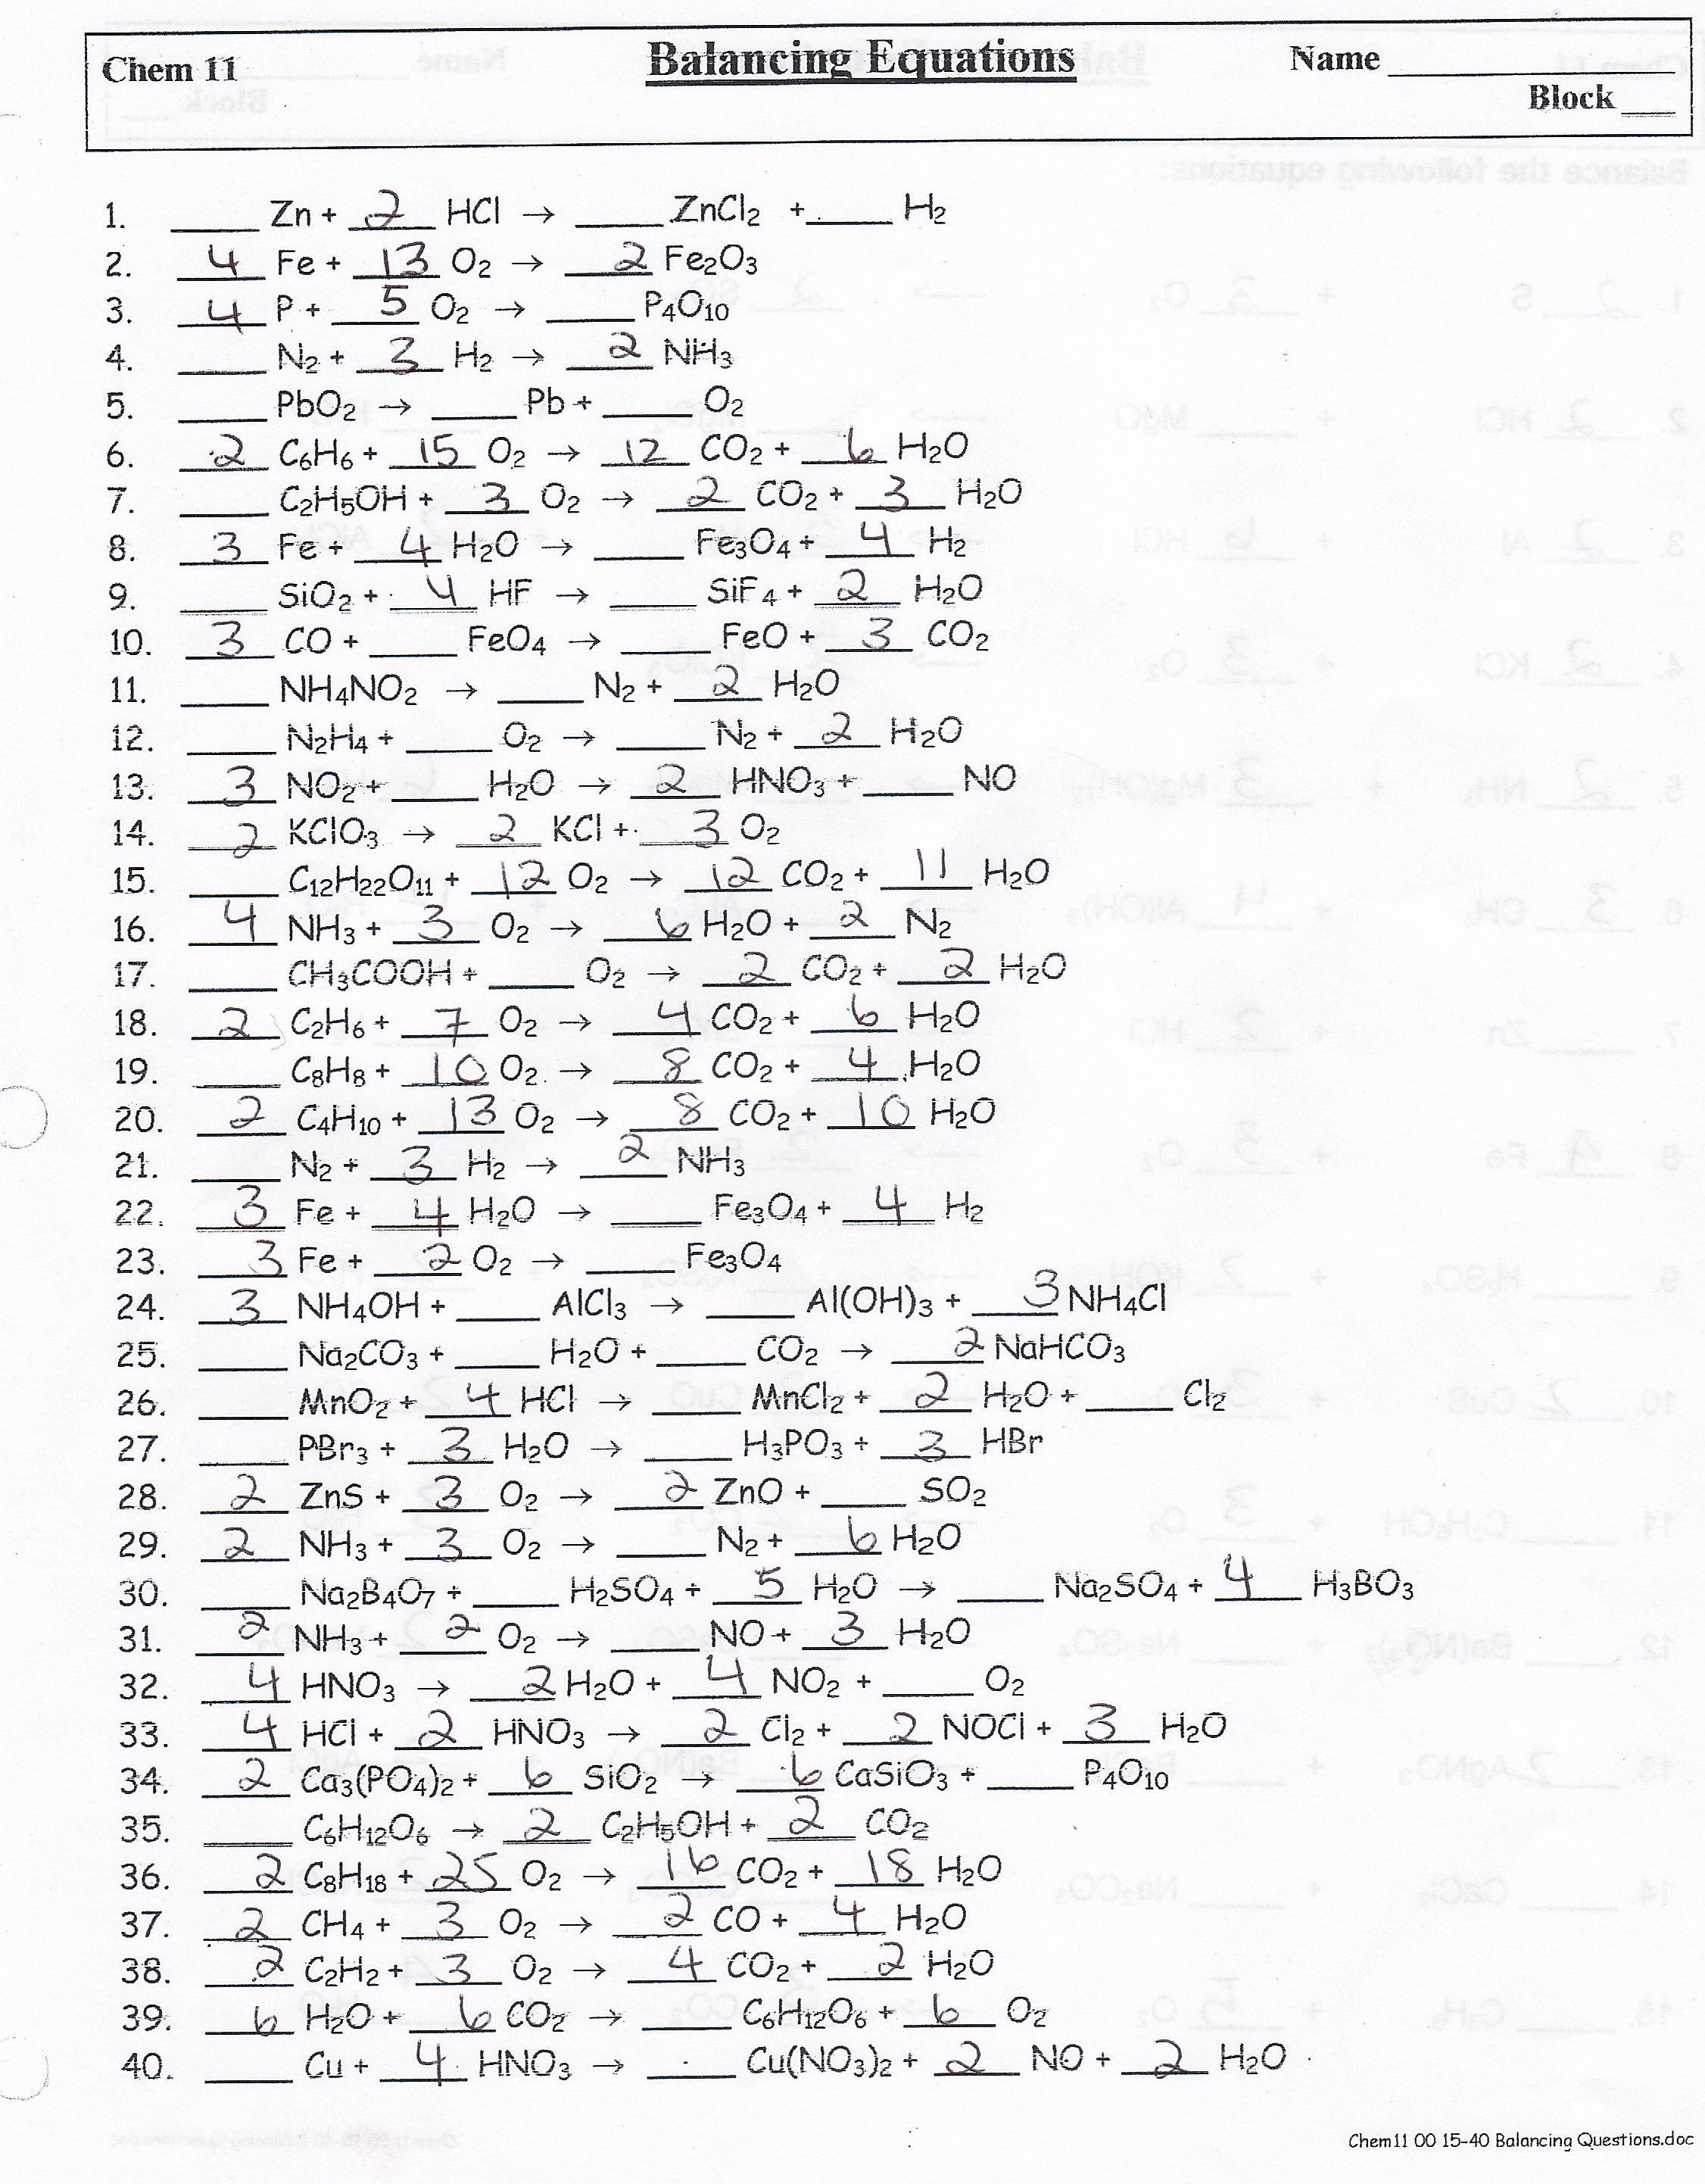 Chem 11 Balancing Equations Name ________
Block ____
1. ____ Zn + 2 HCl → ____ ZnCl₂ + ____ H₂
2. 4 Fe + 13 O₂ → 2 Fe₂O₃
3. 4 P + 5 O₂ → ____ P₄O₁₀
4. ____ N₂ + 3 H₂ → 2 NH₃
5. ____ PbO₂ → ____ Pb + ____ O₂
6. 2 C₆H₆ + 15 O₂ → 12 CO₂ + 6 H₂O
7. ____ C₂H₅OH + 3 O₂ → 2 CO₂ + 3 H₂O
8. 3 Fe + 4 H₂O → ____ Fe₃O₄ + 4 H₂
9. ____ SiO₂ + 4 HF → ____ SiF₄ + 2 H₂O
10. 3 CO + ____ FeO₄ → ____ FeO + 3 CO₂
11. ____ NH₄NO₂ → ____ N₂ + 2 H₂O
12. ____ N₂H₄ + ____ O₂ → ____ N₂ + 2 H₂O
13. 3 NO₂ + ____ H₂O → 2 HNO₃ + ____ NO
14. 2 KClO₃ → 2 KCl + 3 O₂
15. ____ C₁₂H₂₂O₁₁ + 12 O₂ → 12 CO₂ + 11 H₂O
16. 4 NH₃ + 3 O₂ → 6 H₂O + 2 N₂
17. ____ CH₃COOH + ____ O₂ → 2 CO₂ + 2 H₂O
18. 2 C₂H₆ + 7 O₂ → 4 CO₂ + 6 H₂O
19. ____ C₈H₈ + 10 O₂ → 8 CO₂ + 4 H₂O
20. 2 C₄H₁₀ + 13 O₂ → 8 CO₂ + 10 H₂O
21. ____ N₂ + 3 H₂ → 2 NH₃
22. 3 Fe + 4 H₂O → ____ Fe₃O₄ + 4 H₂
23. 3 Fe + 2 O₂ → ____ Fe₃O₄
24. 3 NH₄OH + ____ AlCl₃ → ____ Al(OH)₃ + 3 NH₄Cl
25. ____ Na₂CO₃ + ____ H₂O + ____ CO₂ → 2 NaHCO₃
26. ____ MnO₂ + 4 HCl → ____ MnCl₂ + 2 H₂O + ____ Cl₂
27. ____ PBr₃ + 3 H₂O → ____ H₃PO₃ + 3 HBr
28. 2 ZnS + 3 O₂ → 2 ZnO + ____ SO₂
29. 2 NH₃ + 3 O₂ → ____ N₂ + 6 H₂O
30. ____ Na₂B₄O₇ + ____ H₂SO₄ + 5 H₂O → ____ Na₂SO₄ + 4 H₃BO₃
31. 2 NH₃ + 2 O₂ → ____ NO + 3 H₂O
32. 4 HNO₃ → 2 H₂O + 4 NO₂ + ____ O₂
33. 4 HCl + 2 HNO₃ → 2 Cl₂ + 2 NOCl + 3 H₂O
34. 2 Ca₃(PO₄)₂ + 6 SiO₂ → 6 CaSiO₃ + ____ P₄O₁₀
35. ____ C₆H₁₂O₆ → 2 C₂H₅OH + 2 CO₂
36. 2 C₈H₁₈ + 25 O₂ → 16 CO₂ + 18 H₂O
37. 2 CH₄ + 3 O₂ → 2 CO + 4 H₂O
38. 2 C₂H₂ + 3 O₂ → 4 CO₂ + 2 H₂O
39. 6 H₂O + 6 CO₂ → ____ C₆H₁₂O₆ + 6 O₂
40. ____ Cu + 4 HNO₃ → ____ Cu(NO₃)₂ + 2 NO + 2 H₂O
Chem11 00 15-40 Balancing Questions.doc